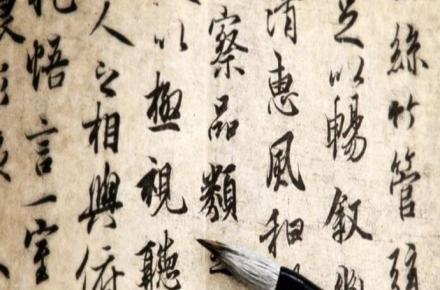 絲竹管弦
足以暢叙幽
清惠風和
察品類之
以極視聽
人之相與俯
抱悟言一室